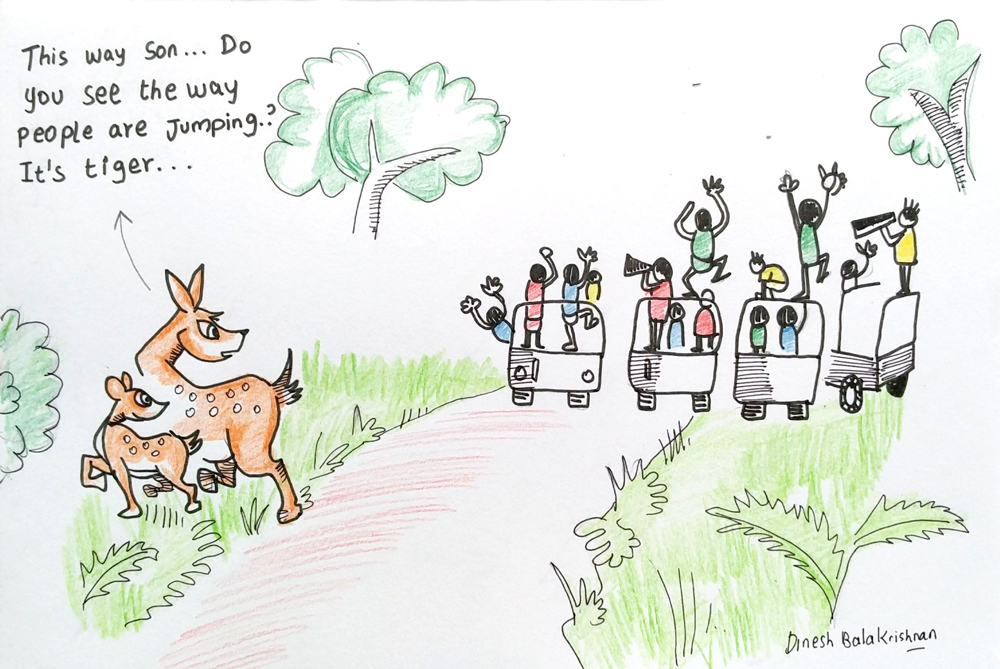 This way son... Do
you see the way
people are Jumping..?
It's tiger...
Dinesh Balakrishnan